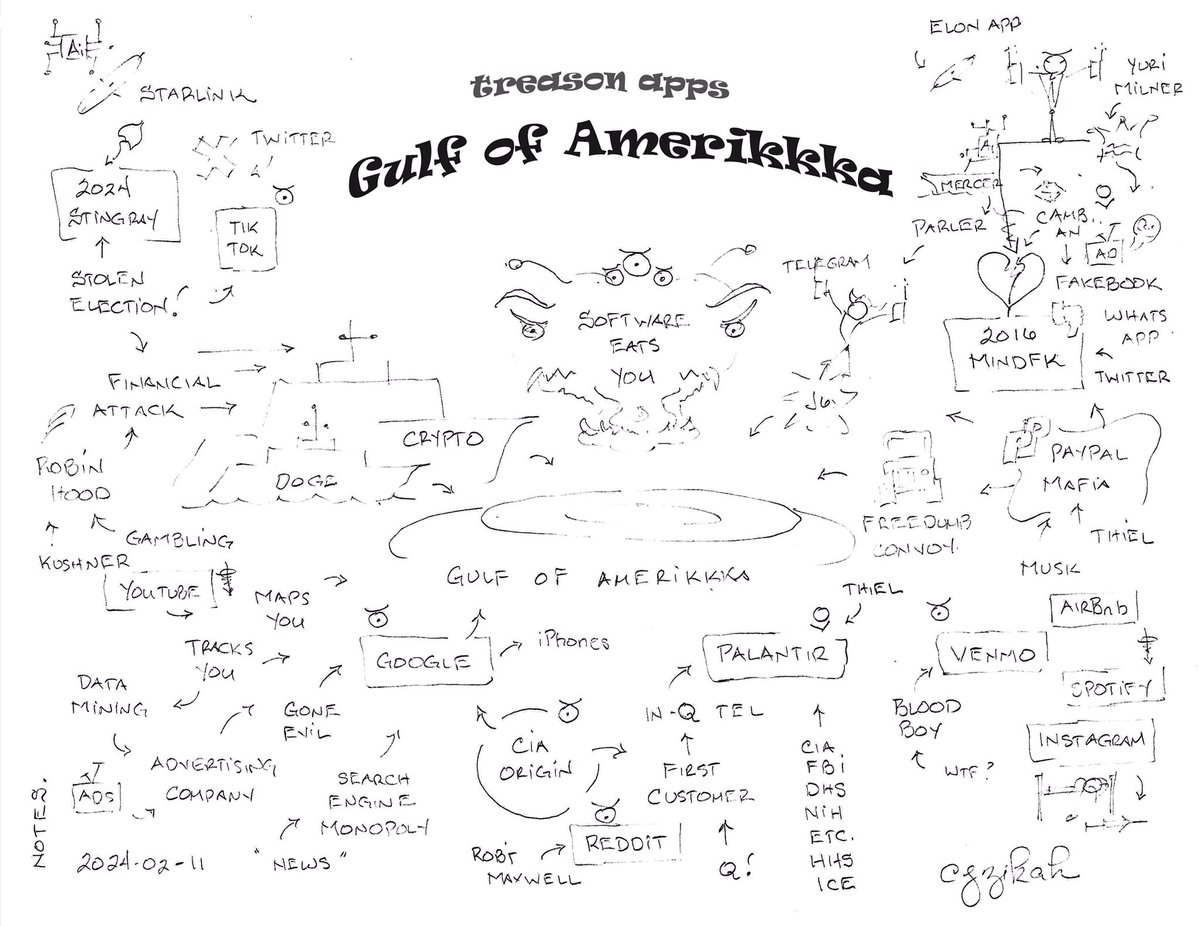 treason apps
Gulf of Amerikkka
Ai
STARLINK
TWITTER
2024
STINGRAY
TIK
TOK
STOLEN
ELECTION!
FINANCIAL
ATTACK
ROBIN
HOOD
KUSHNER
GAMBLING
CRYPTO
DOGE
SOFTWARE
EATS
YOU
TELEGRAM
J6.
ELON APP
YURI
MILNER
Ai
MERCER
PARLER
CAMB.
AN
AD
FAKEBOOK
2016
MINDFK
WHATS
APP
TWITTER
PAYPAL
MAFIA
THIEL
MUSK
FREEDUMB
CONVOY.
GULF OF AMERIKKKA
YOUTUBE
MAPS
YOU
TRACKS
YOU
DATA
MINING
ADS
ADVERTISING
COMPANY
GONE
EVIL
GOOGLE
iPhones
SEARCH
ENGINE
MONOPOLY
"NEWS"
CIA
ORIGIN
IN-Q TEL
FIRST
CUSTOMER
Q!
REDDIT
ROBT
MAXWELL
THIEL
PALANTIR
CIA.
FBI
DHS
NIH
ETC.
HHS
ICE
VENMO
BLOOD
BOY
WTF?
AIRBnb
SPOTIFY
INSTAGRAM
NOTES.
2024-02-11
cgzikah